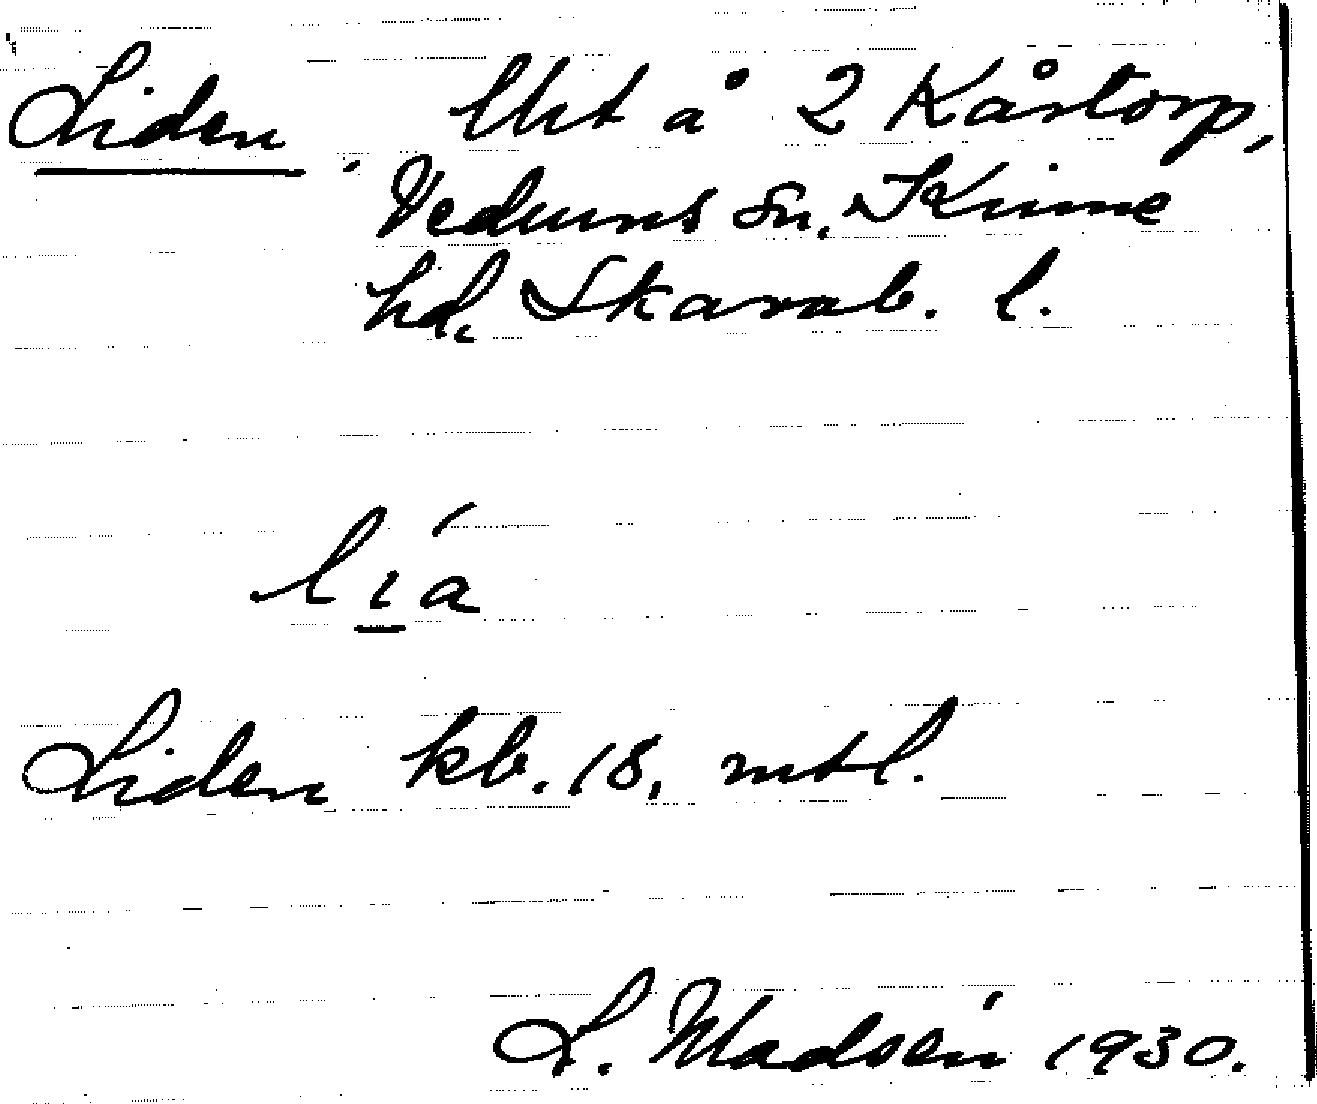 Liden. Utt å 2 Kåstorp,
Vedums sn, Kinne
hd, Skarab. l.
lı̲á
Liden kb. 18, mtl.
L. Madsén 1930.